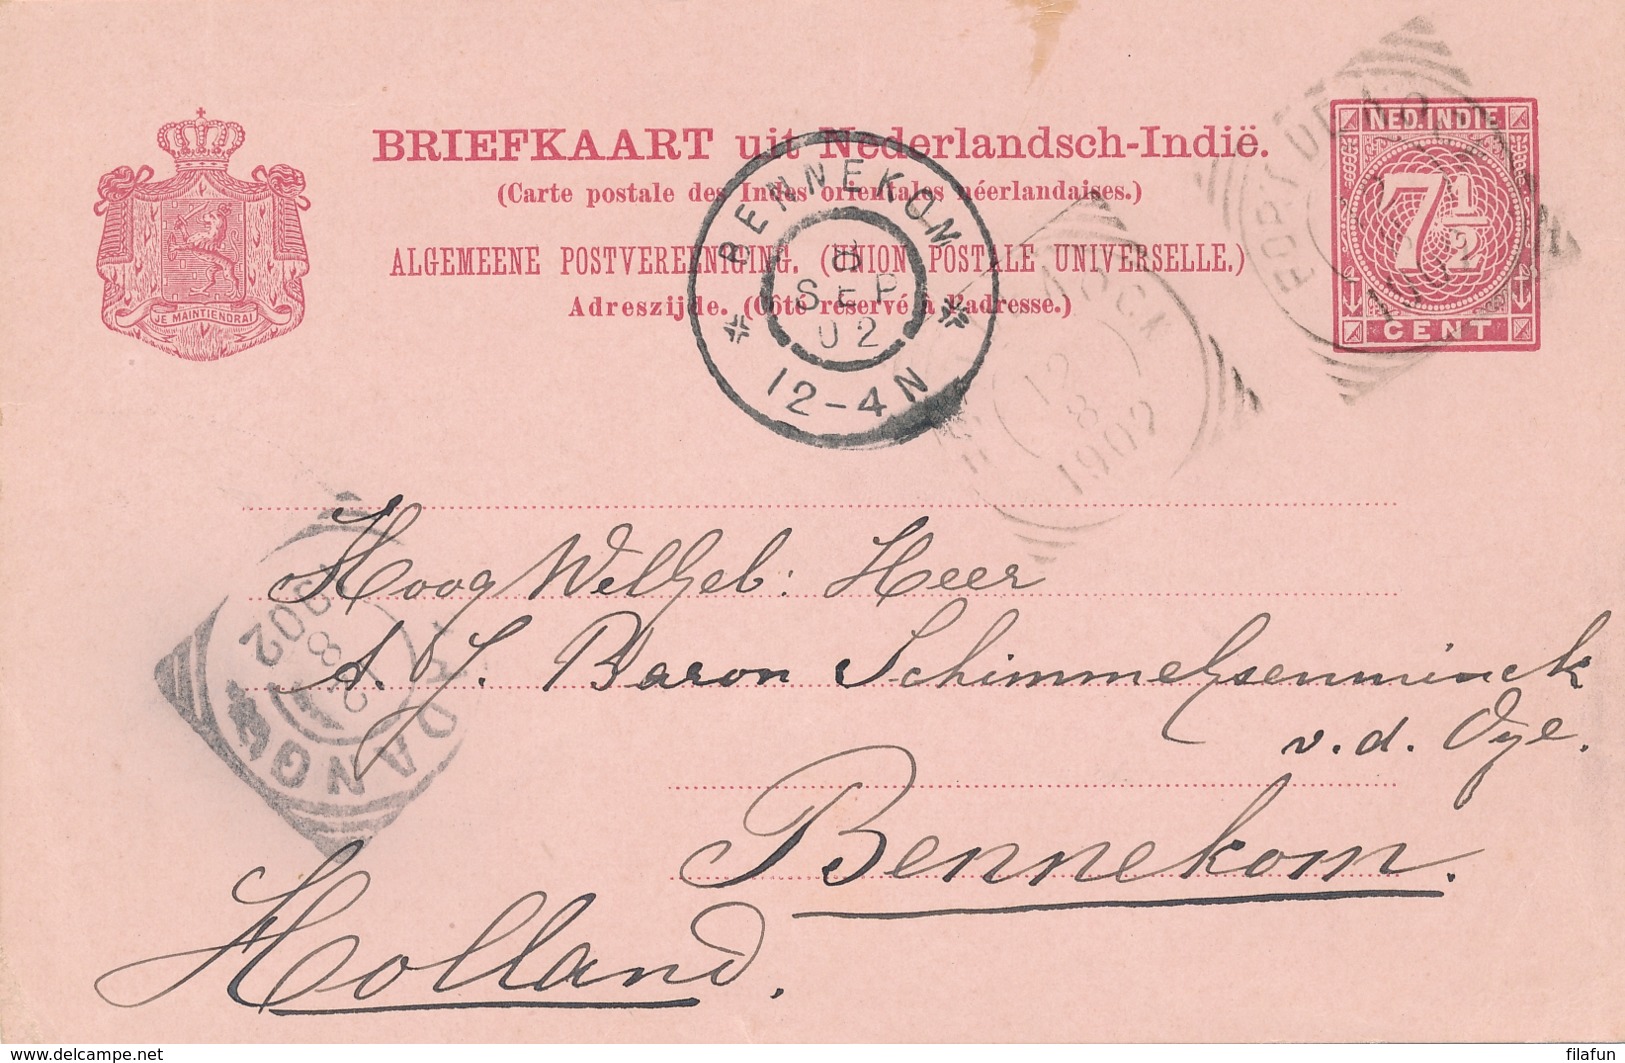 BRIEFKAART uit Nederlandsch-Indië.
(Carte postale des Indes orientales néerlandaises.)
ALGEMEENE POSTVEREENIGING. (UNION POSTALE UNIVERSELLE.)
Adreszijde. (Côté réservé à l'adresse.)
JE MAINTIENDRAI
NED. INDIE
7½
CENT
FORT DE KOCK
1902
BENNEKOM
8
SEP
02
12-4N
KOCK
12
8
1902
PADANG
8
1902
Hoog WelGeb: Heer
A. J. Baron Schimmelpenninck
v. d. Oye.
Bennekom.
Holland.
www.delcampe.net
filafun